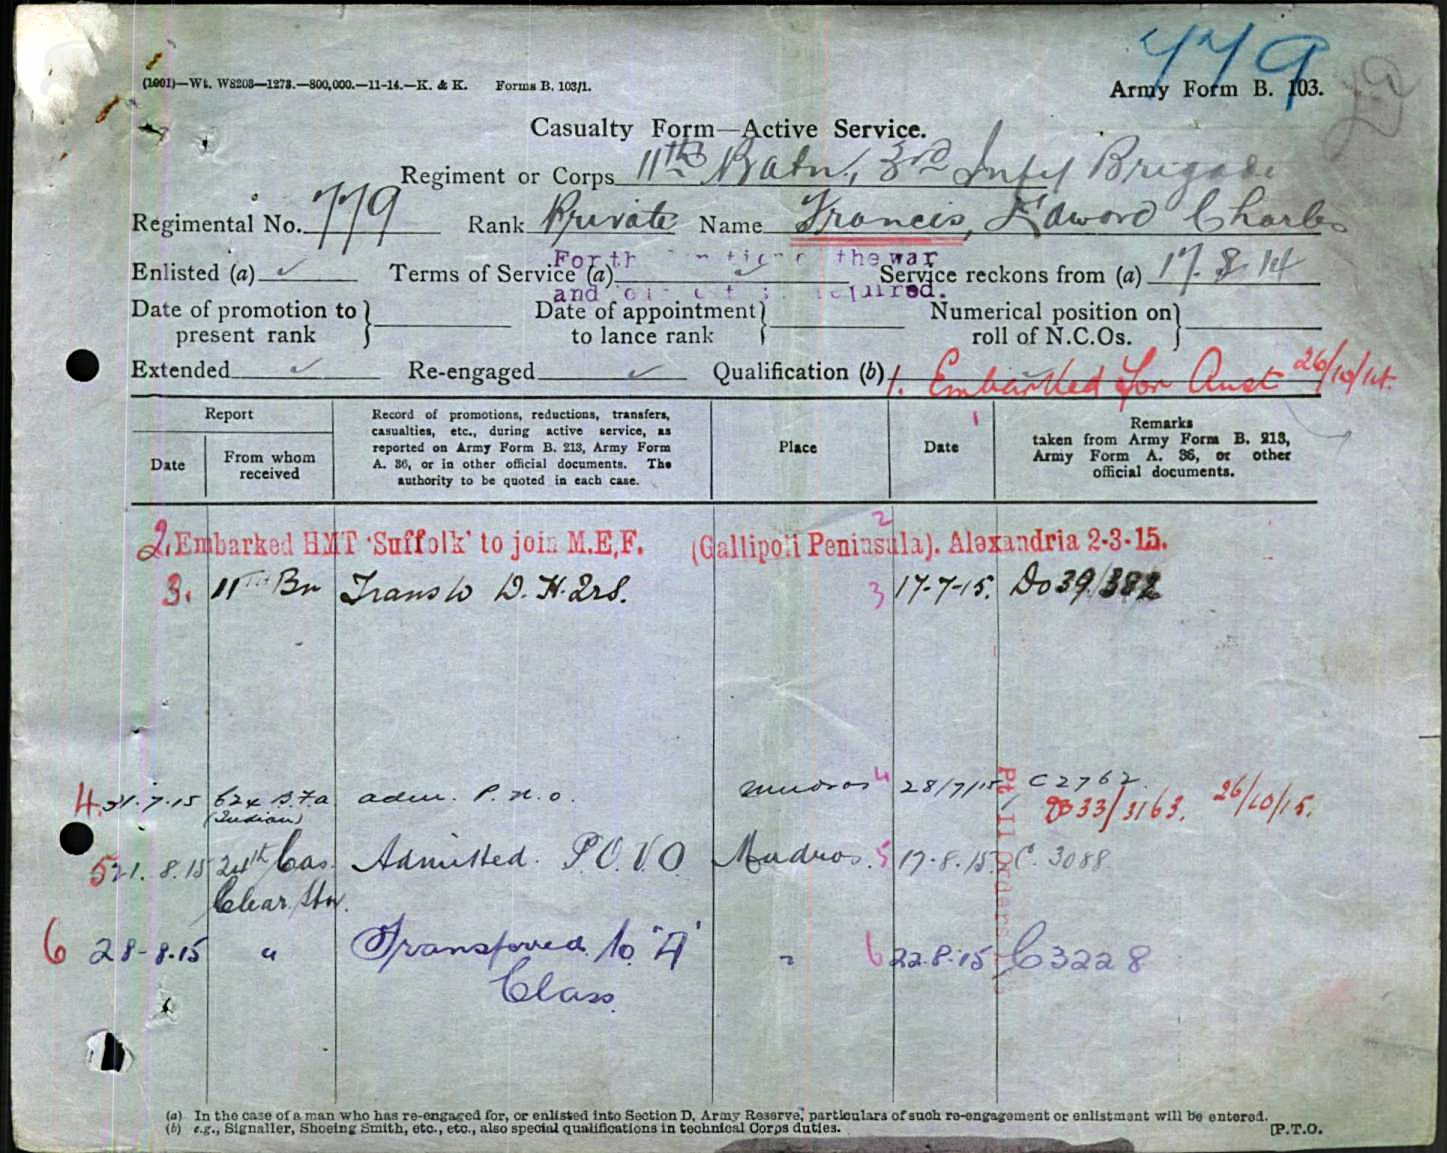 779
(1001)—Wt. W8203—1273.—800,000.—11-14.—K. & K. Forms B. 103/1.
Army Form B. 103.
Casualty Form—Active Service.
Regiment or Corps 11th Batn, 3rd Infy Brigade
Regimental No. 779 Rank Private Name Francis, Edward Charles
For the war
Enlisted (a) ✓ Terms of Service (a) ✓ Service reckons from (a) 17.8.14
and
Date of promotion to present rank } Date of appointment to lance rank } Numerical position on roll of N.C.Os. }
Extended ✓ Re-engaged ✓ Qualification (b)
1. Embarked for Aust 26/10/14.
Report
Date
From whom received
Record of promotions, reductions, transfers,
casualties, etc., during active service, as
reported on Army Form B. 213, Army Form
A. 36, or in other official documents. The
authority to be quoted in each case.
Place
1
Date
Remarks
taken from Army Form B. 213,
Army Form A. 36, or other
official documents.
2. Embarked HMT 'Suffolk' to join M.E.F. (Gallipoli Peninsula). Alexandria 2-3-15.
2
3. 11TH Bn Trans to D. H. Qrs. 3 17-7-15. Do 39/382
4. 31.7.15 (Indian) adm. P.U.O. Mudros 4 28/7/15 C 2762
33/3163. 26/10/15.
5 21.8.15 24th Cas. Clear. Stn. Admitted. P.U.O Mudros. 5 17-8.15. C. 3088
6 28-8.15 " Transferred to 'A' Class " 6 22.8.15 C3228
Pt. II Orders
(a) In the case of a man who has re-engaged for, or enlisted into Section D, Army Reserve, particulars of such re-engagement or enlistment will be entered.
(b) e.g., Signaller, Shoeing Smith, etc., etc., also special qualifications in technical Corps duties.
[P.T.O.